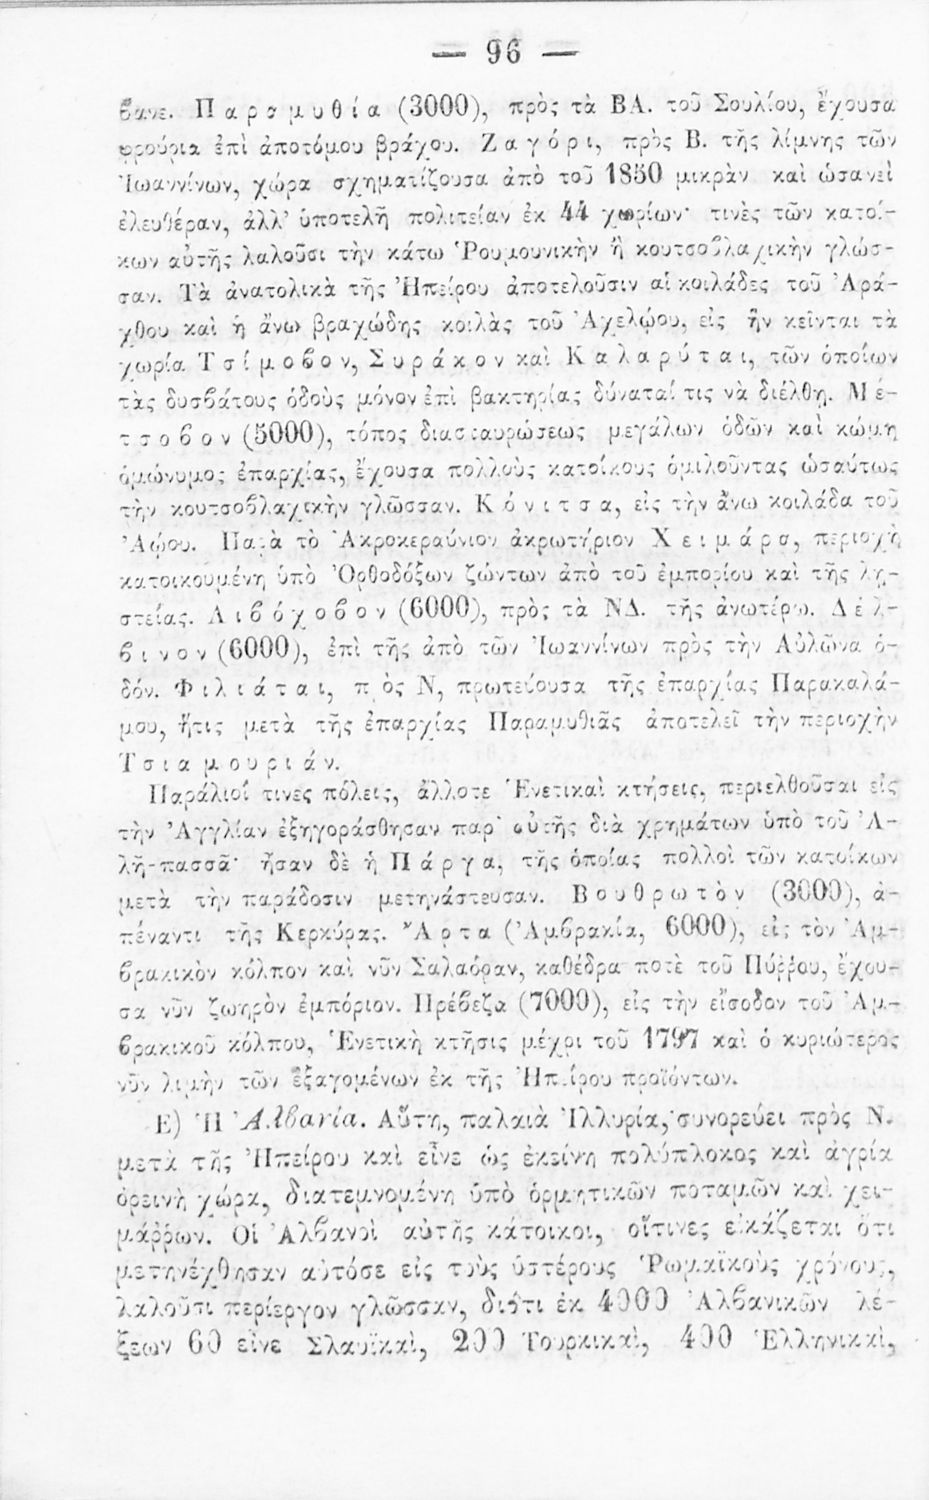 — 96 —
βανε. Παραμυθία (3000), πρὸς τὰ ΒΑ. τοῦ Σουλίου, ἔχουσα
φρούρια ἐπὶ ἀποτόμου βράχου. Ζαγόρι, πρὸς Β. τῆς λίμνης τῶν
Ἰωαννίνων, χώρα σχηματίζουσα ἀπὸ τοῦ 1850 μικρὰν καὶ ὡσανεὶ
ἐλευθέραν, ἀλλ’ ὑποτελῆ πολιτείαν ἐκ 44 χωρίων· τινὲς τῶν κατοί-
κων αὐτῆς λαλοῦσι τὴν κάτω Ῥουμουνικὴν ἢ κουτσοβλαχικὴν γλώσ-
σαν. Τὰ ἀνατολικὰ τῆς Ἠπείρου ἀποτελοῦσιν αἱ κοιλάδες τοῦ Ἀρά-
χθου καὶ ἡ ἄνω βραχώδης κοιλὰς τοῦ Ἀχελῴου, εἰς ἣν κεῖνται τὰ
χωρία Τσίμοβον, Συράκον καὶ Καλαρύται, τῶν ὁποίων
τὰς δυσβάτους ὁδοὺς μόνον ἐπὶ βακτηρίας δύναταί τις νὰ διέλθῃ. Μέ-
τσοβον (5000), τόπος διασταυρώσεως μεγάλων ὁδῶν καὶ κώμη
ὁμώνυμος ἐπαρχίας, ἔχουσα πολλοὺς κατοίκους ὁμιλοῦντας ὡσαύτως
τὴν κουτσοβλαχικὴν γλῶσσαν. Κόνιτσα, εἰς τὴν ἄνω κοιλάδα τοῦ
Ἀῴου. Παρὰ τὸ Ἀκροκεραύνιον ἀκρωτήριον Χειμάρα, περιοχὴ
κατοικουμένη ὑπὸ Ὀρθοδόξων ζώντων ἀπὸ τοῦ ἐμπορίου καὶ τῆς λῃ-
στείας. Λιβόχοβον (6000), πρὸς τὰ ΝΔ. τῆς ἀνωτέρω. Δέλ-
βινον (6000), ἐπὶ τῆς ἀπὸ τῶν Ἰωαννίνων πρὸς τὴν Αὐλῶνα ὁ-
δόν. Φιλιάται, πρὸς Ν, πρωτεύουσα τῆς ἐπαρχίας Παρακαλά-
μου, ἥτις μετὰ τῆς ἐπαρχίας Παραμυθιᾶς ἀποτελεῖ τὴν περιοχὴν
Τσιαμουριάν.
Παράλιοί τινες πόλεις, ἄλλοτε Ἑνετικαὶ κτήσεις, περιελθοῦσαι εἰς
τὴν Ἀγγλίαν ἐξηγοράσθησαν παρ’ αὐτῆς διὰ χρημάτων ὑπὸ τοῦ Ἀ-
λῆ-πασσᾶ· ἦσαν δὲ ἡ Πάργα, τῆς ὁποίας πολλοὶ τῶν κατοίκων
μετὰ τὴν παράδοσιν μετηνάστευσαν. Βουθρωτὸν (3000), ἀ-
πέναντι τῆς Κερκύρας. Ἄρτα (Ἀμβρακία, 6000), εἰς τὸν Ἀμ-
βρακικὸν κόλπον καὶ νῦν Σαλαόραν, καθέδρα ποτὲ τοῦ Πύῤῥου, ἔχου-
σα νῦν ζωηρὸν ἐμπόριον. Πρέβεζα (7000), εἰς τὴν εἴσοδον τοῦ Ἀμ-
βρακικοῦ κόλπου, Ἑνετικὴ κτῆσις μέχρι τοῦ 1797 καὶ ὁ κυριώτερος
νῦν λιμὴν τῶν ἐξαγομένων ἐκ τῆς Ἠπείρου προϊόντων.
Ε) Ἡ Ἀλβανία. Αὕτη, παλαιὰ Ἰλλυρία, συνορεύει πρὸς Ν.
μετὰ τῆς Ἠπείρου καὶ εἶνε ὡς ἐκείνη πολύπλοκος καὶ ἀγρία
ὀρεινὴ χώρα, διατεμνομένη ὑπὸ ὁρμητικῶν ποταμῶν καὶ χει-
μάῤῥων. Οἱ Ἀλβανοὶ αὐτῆς κάτοικοι, οἵτινες εἰκάζεται ὅτι
μετηνέχθησαν αὐτόσε εἰς τοὺς ὑστέρους Ῥωμαϊκοὺς χρόνους,
λαλοῦσι περίεργον γλῶσσαν, διότι ἐκ 4000 Ἀλβανικῶν λέ-
ξεων 60 εἶνε Σλαυϊκαὶ, 200 Τουρκικαὶ, 400 Ἑλληνικαὶ,